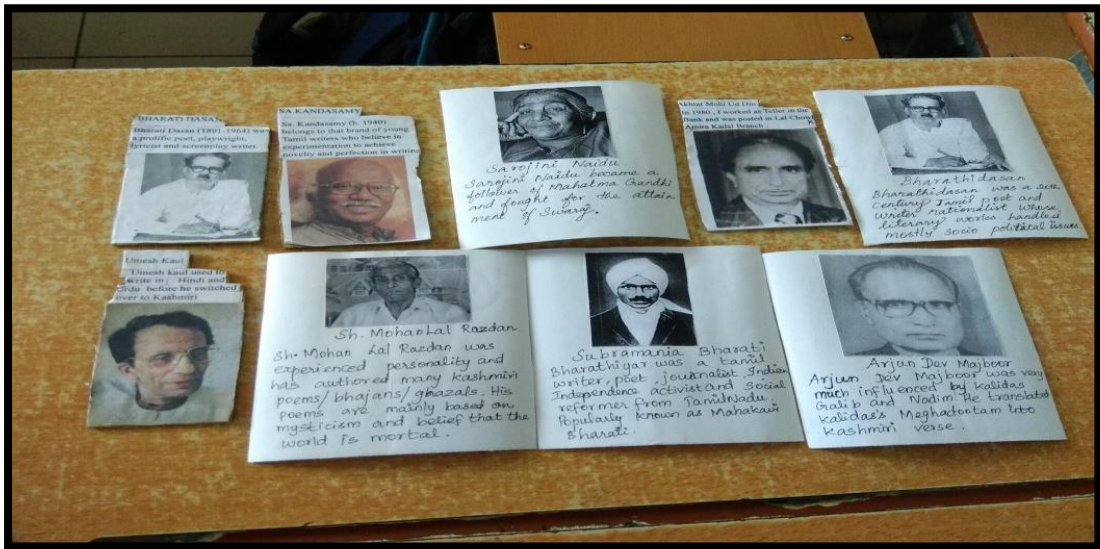 BHARATI DASAN
Bharati Dasan (1891-1964) was
a prolific poet, playwright,
lyricist and screenplay writer.
SA.KANDASAMY
Sa. Kandasamy (b. 1940)
belongs to that brand of young
Tamil writers who believe in
experimentation to achieve
novelty and perfection in writing
Sarojini Naidu
Sarojini Naidu became a
follower of Mahatma Gandhi
and fought for the attain
ment of Swaraj.
Akhtar Mohi Ud Din
In 1980, I worked as Teller in the
Bank and was posted in Lal Chowk
Amira Kadal Branch
Bharathidasan
Bharathidasan was a
century Tamil poet and
writer nationalist whose
literary works handled
mostly socio political issues.
Umesh Kaul
Umesh kaul used to
write in Hindi and
Urdu before he switched
over to Kashmiri
Sh. Mohan Lal Razdan
Sh. Mohan Lal Razdan was
experienced personality and
has authored many kashmiri
poems/bhajans/ghazals. His
poems are mainly based on
mysticism and belief that the
world is mortal.
Subramania Bharati
Bharathigar was a tamil
writer, poet, journalist, Indian
Independence activist and social
reformer from TamilNadu.
Popularly known as Mahakavi
Bharati.
Arjun Dev Majboor
Arjun Dev Majboor was very
much influenced by kalidas
Galib and Nadim. He translated
kalidas's Meghadootam into
kashmiri verse.